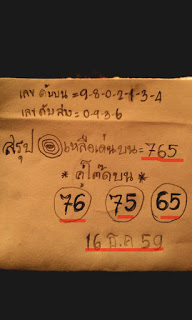 เลข ดับบน =9-8-0-2-1-3-4
เลข ดับ ล่าง =0-9-3-6
สรุป เหลือเด่นบน=765
* คู่โต๊ดบน *
76 75 65
16 มี.ค 59